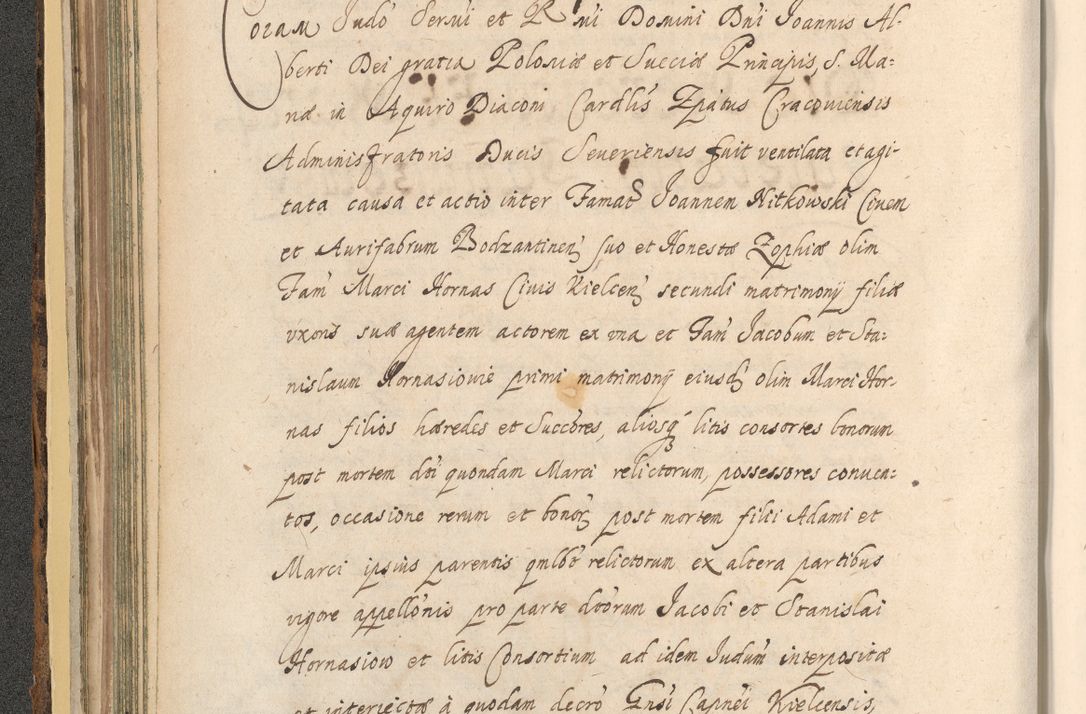 Coram Judō Sermi et R̄ni Domini Dn̄i Joannis Al-
berti Dei gratia Poloniæ et Sueciæ Principis, S. Ma=
riæ in Aquiro Diaconi Cardlis Epātus Cracoviensis
Administratoris Ducis Severiensis fuit ventilata et agi-
tata causa et actio inter Famat̄ Joannem Nitkowski Civem
et Aurifabrum Bodzantinen̄ suo et Honestæ Zophiæ olim
Fam̄ Marci Hornas Civis Kielcen̄ secundi matrimonÿ filiæ
uxoris suæ agentem actorem ex una et Fam̄ Jacobum et Sta=
nislaum Hornasiowie primi matrimonÿ eiusd̄ olim Marci Hor-
nas filios hæredes et Succōres, aliosq̄ litis consortes bonorum
post mortem dti quondam Marci relictorum, possessores convoca=
tos, occasione rerum et bonor̄ post mortem filii Adami et
Marci ipsius parentis qnlbt̄ relictorum ex altera partibus
vigore appellōnis pro parte dtōrum Jacobi et Stanislai
Hornasiow et litis Consortium ad idem Judum̄ interpositæ
et interiectæ à quodam decrō Gnsī Capnei Kielcensis,